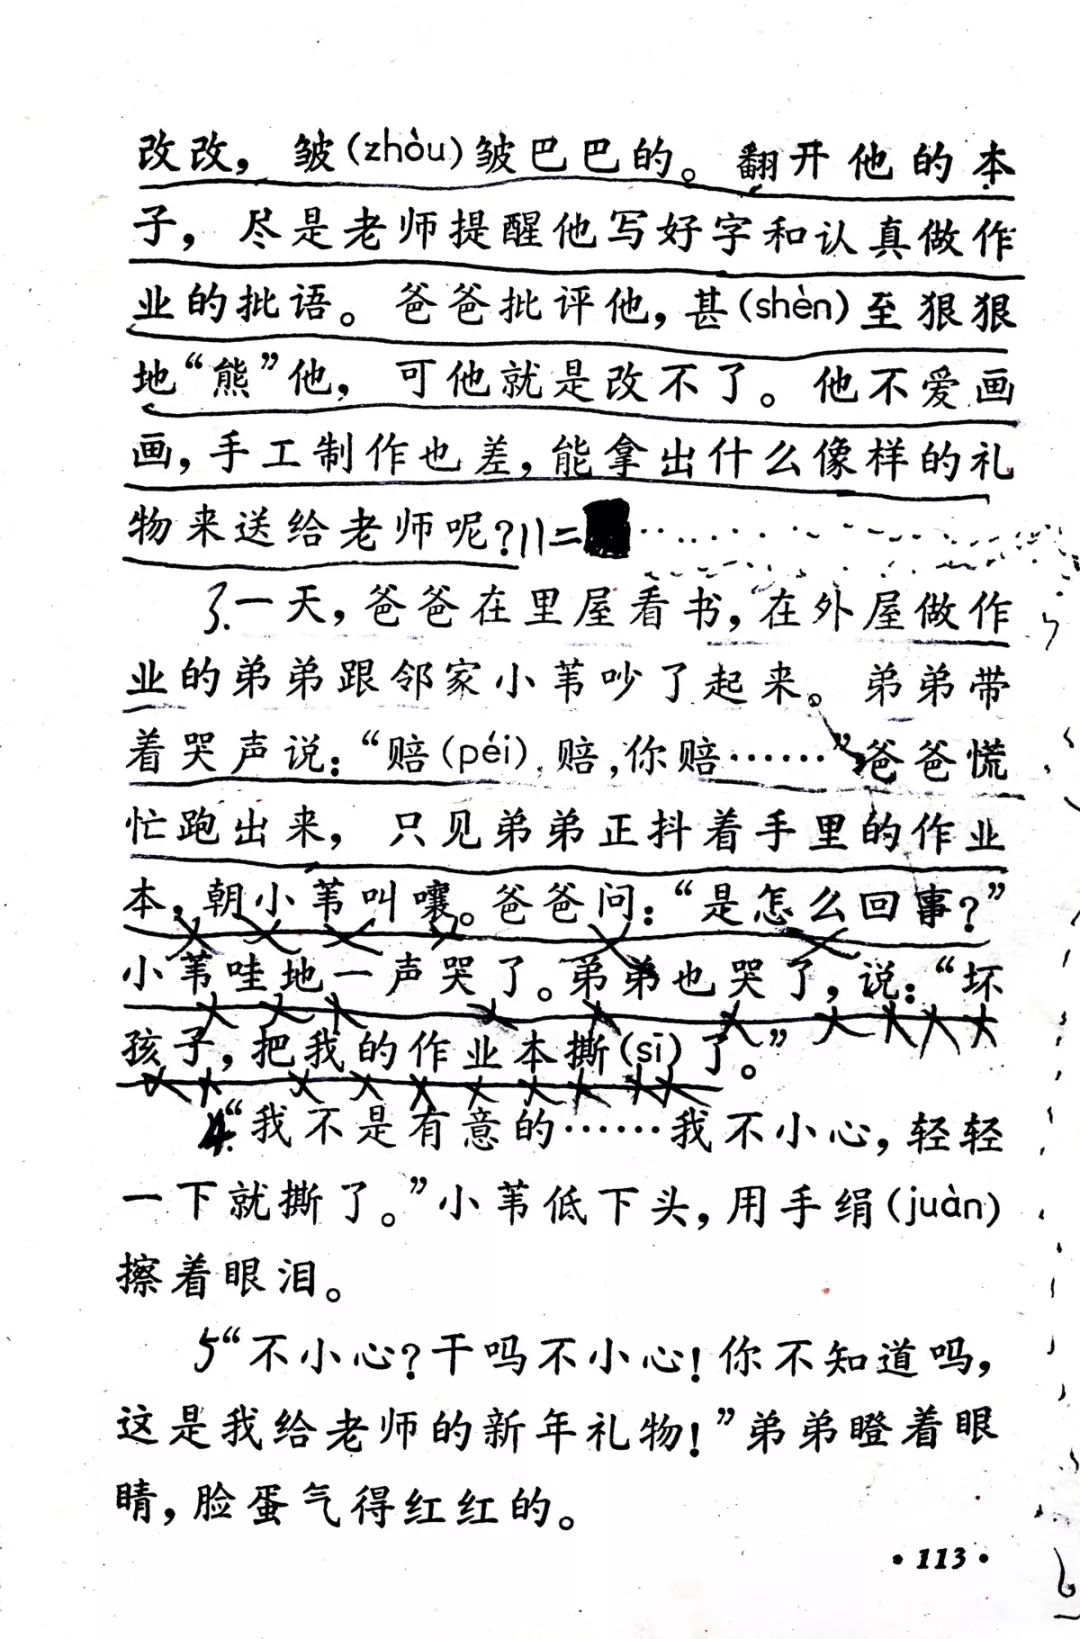 改改，皱(zhòu)皱巴巴的。翻开他的本
子，尽是老师提醒他写好字和认真做作
业的批语。爸爸批评他，甚(shèn)至狠狠
地“熊”他，可他就是改不了。他不爱画
画，手工制作也差，能拿出什么像样的礼
物来送给老师呢？||二
3.一天，爸爸在里屋看书，在外屋做作
业的弟弟跟邻家小苇吵了起来。弟弟带
着哭声说：“赔(péi)，赔，你赔……”爸爸慌
忙跑出来，只见弟弟正抖着手里的作业
本，朝小苇叫嚷。爸爸问：“是怎么回事？”
小苇哇地一声哭了。弟弟也哭了，说：“坏
孩子，把我的作业本撕(sī)了。”
4.“我不是有意的……我不小心，轻轻
一下就撕了。”小苇低下头，用手绢(juàn)
擦着眼泪。
5“不小心？干吗不小心！你不知道吗，
这是我给老师的新年礼物！”弟弟瞪着眼
睛，脸蛋气得红红的。
·113·